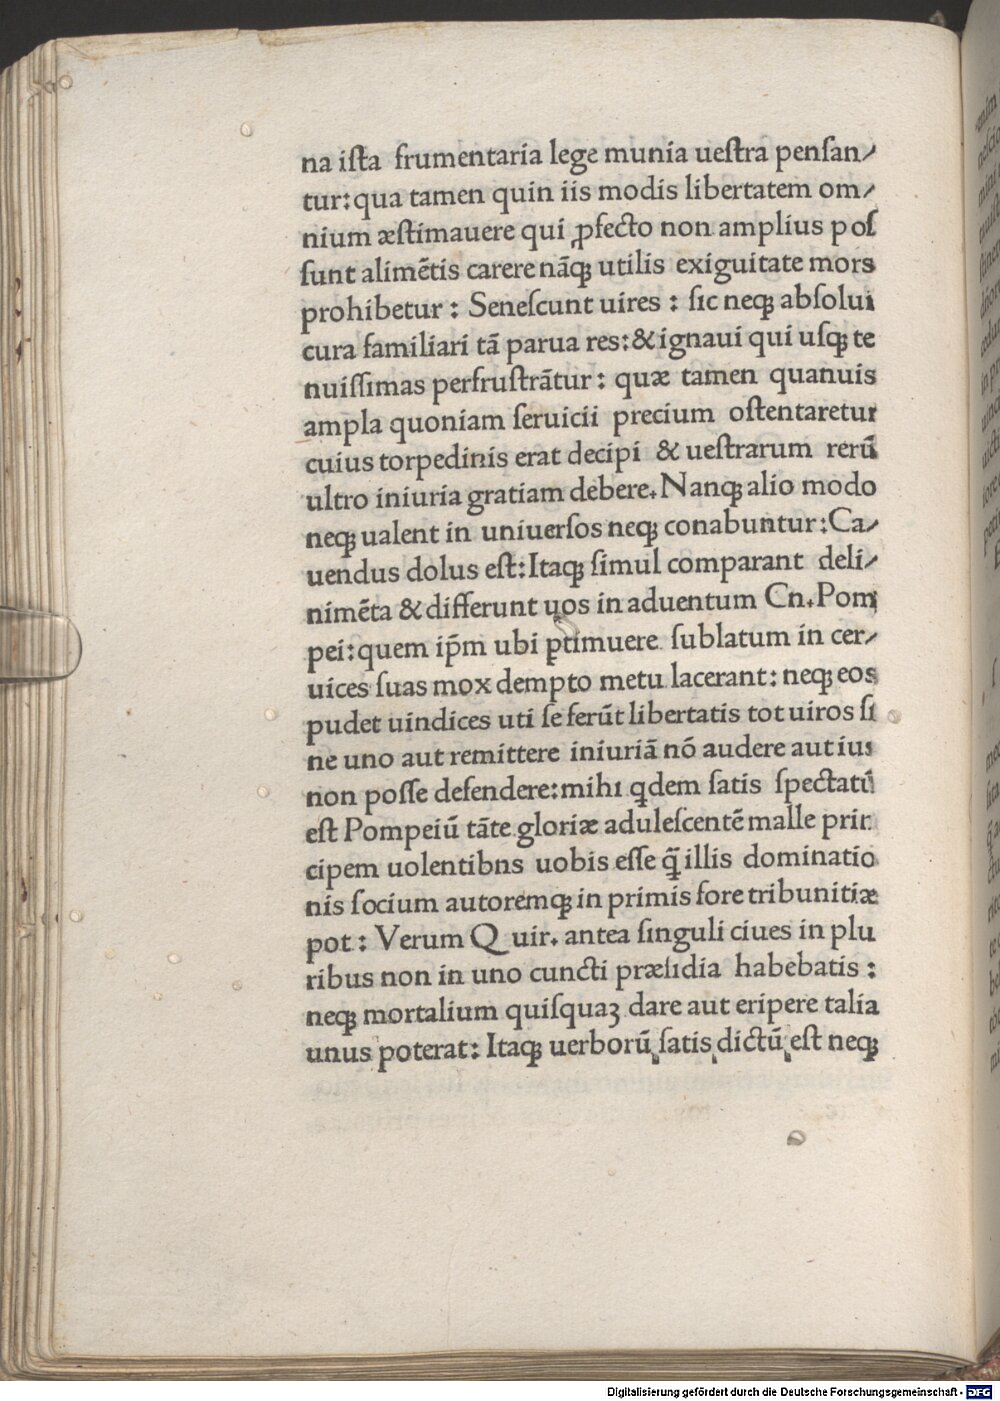 na iſta frumentaria lege munia ueſtra penſan⸗
tur: qua tamen quin iis modis libertatem om⸗
nium æſtimauere qui ꝓfecto non amplius poſ
ſunt alimētis carere nāqꝫ utilis exiguitate mors
prohibetur : Seneſcunt uires : ſic neqꝫ abſolui
cura familiari tā parua res: & ignaui qui uſqꝫ te
nuiſſimas perfruſtrātur : quæ tamen quanuis
ampla quoniam ſeruicii precium oſtentaretur
cuius torpedinis erat decipi & ueſtrarum rerū
ultro iniuria gratiam debere. Nanqꝫ alio modo
neqꝫ ualent in uniuerſos neqꝫ conabuntur: Ca⸗
uendus dolus eſt: Itaqꝫ ſimul comparant deli⸗
nimēta & differunt uos in aduentum Cn. Pom
pei: quem ip̄m ubi ꝑtimuere ſublatum in cer⸗
uices ſuas mox dempto metu lacerant: neqꝫ eos
pudet uindices uti ſe ferūt libertatis tot uiros ſi
ne uno aut remittere iniuriā nō audere aut ius
non poſſe defendere: mihi qdem ſatis ſpectatū
eſt Pompeiū tāte gloriæ aduleſcentē malle prin
cipem uolentibns uobis eſſe q̄ illis dominatio
nis ſocium autoremqꝫ in primis fore tribunitiæ
pot : Verum Q uir. antea ſinguli ciues in plu
ribus non in uno cuncti præſidia habebatis :
neqꝫ mortalium quiſquaꝫ dare aut eripere talia
unus poterat: Itaqꝫ uerborū ſatis dictū eſt neqꝫ
Digitalisierung gefördert durch die Deutsche Forschungsgemeinschaft - DFG